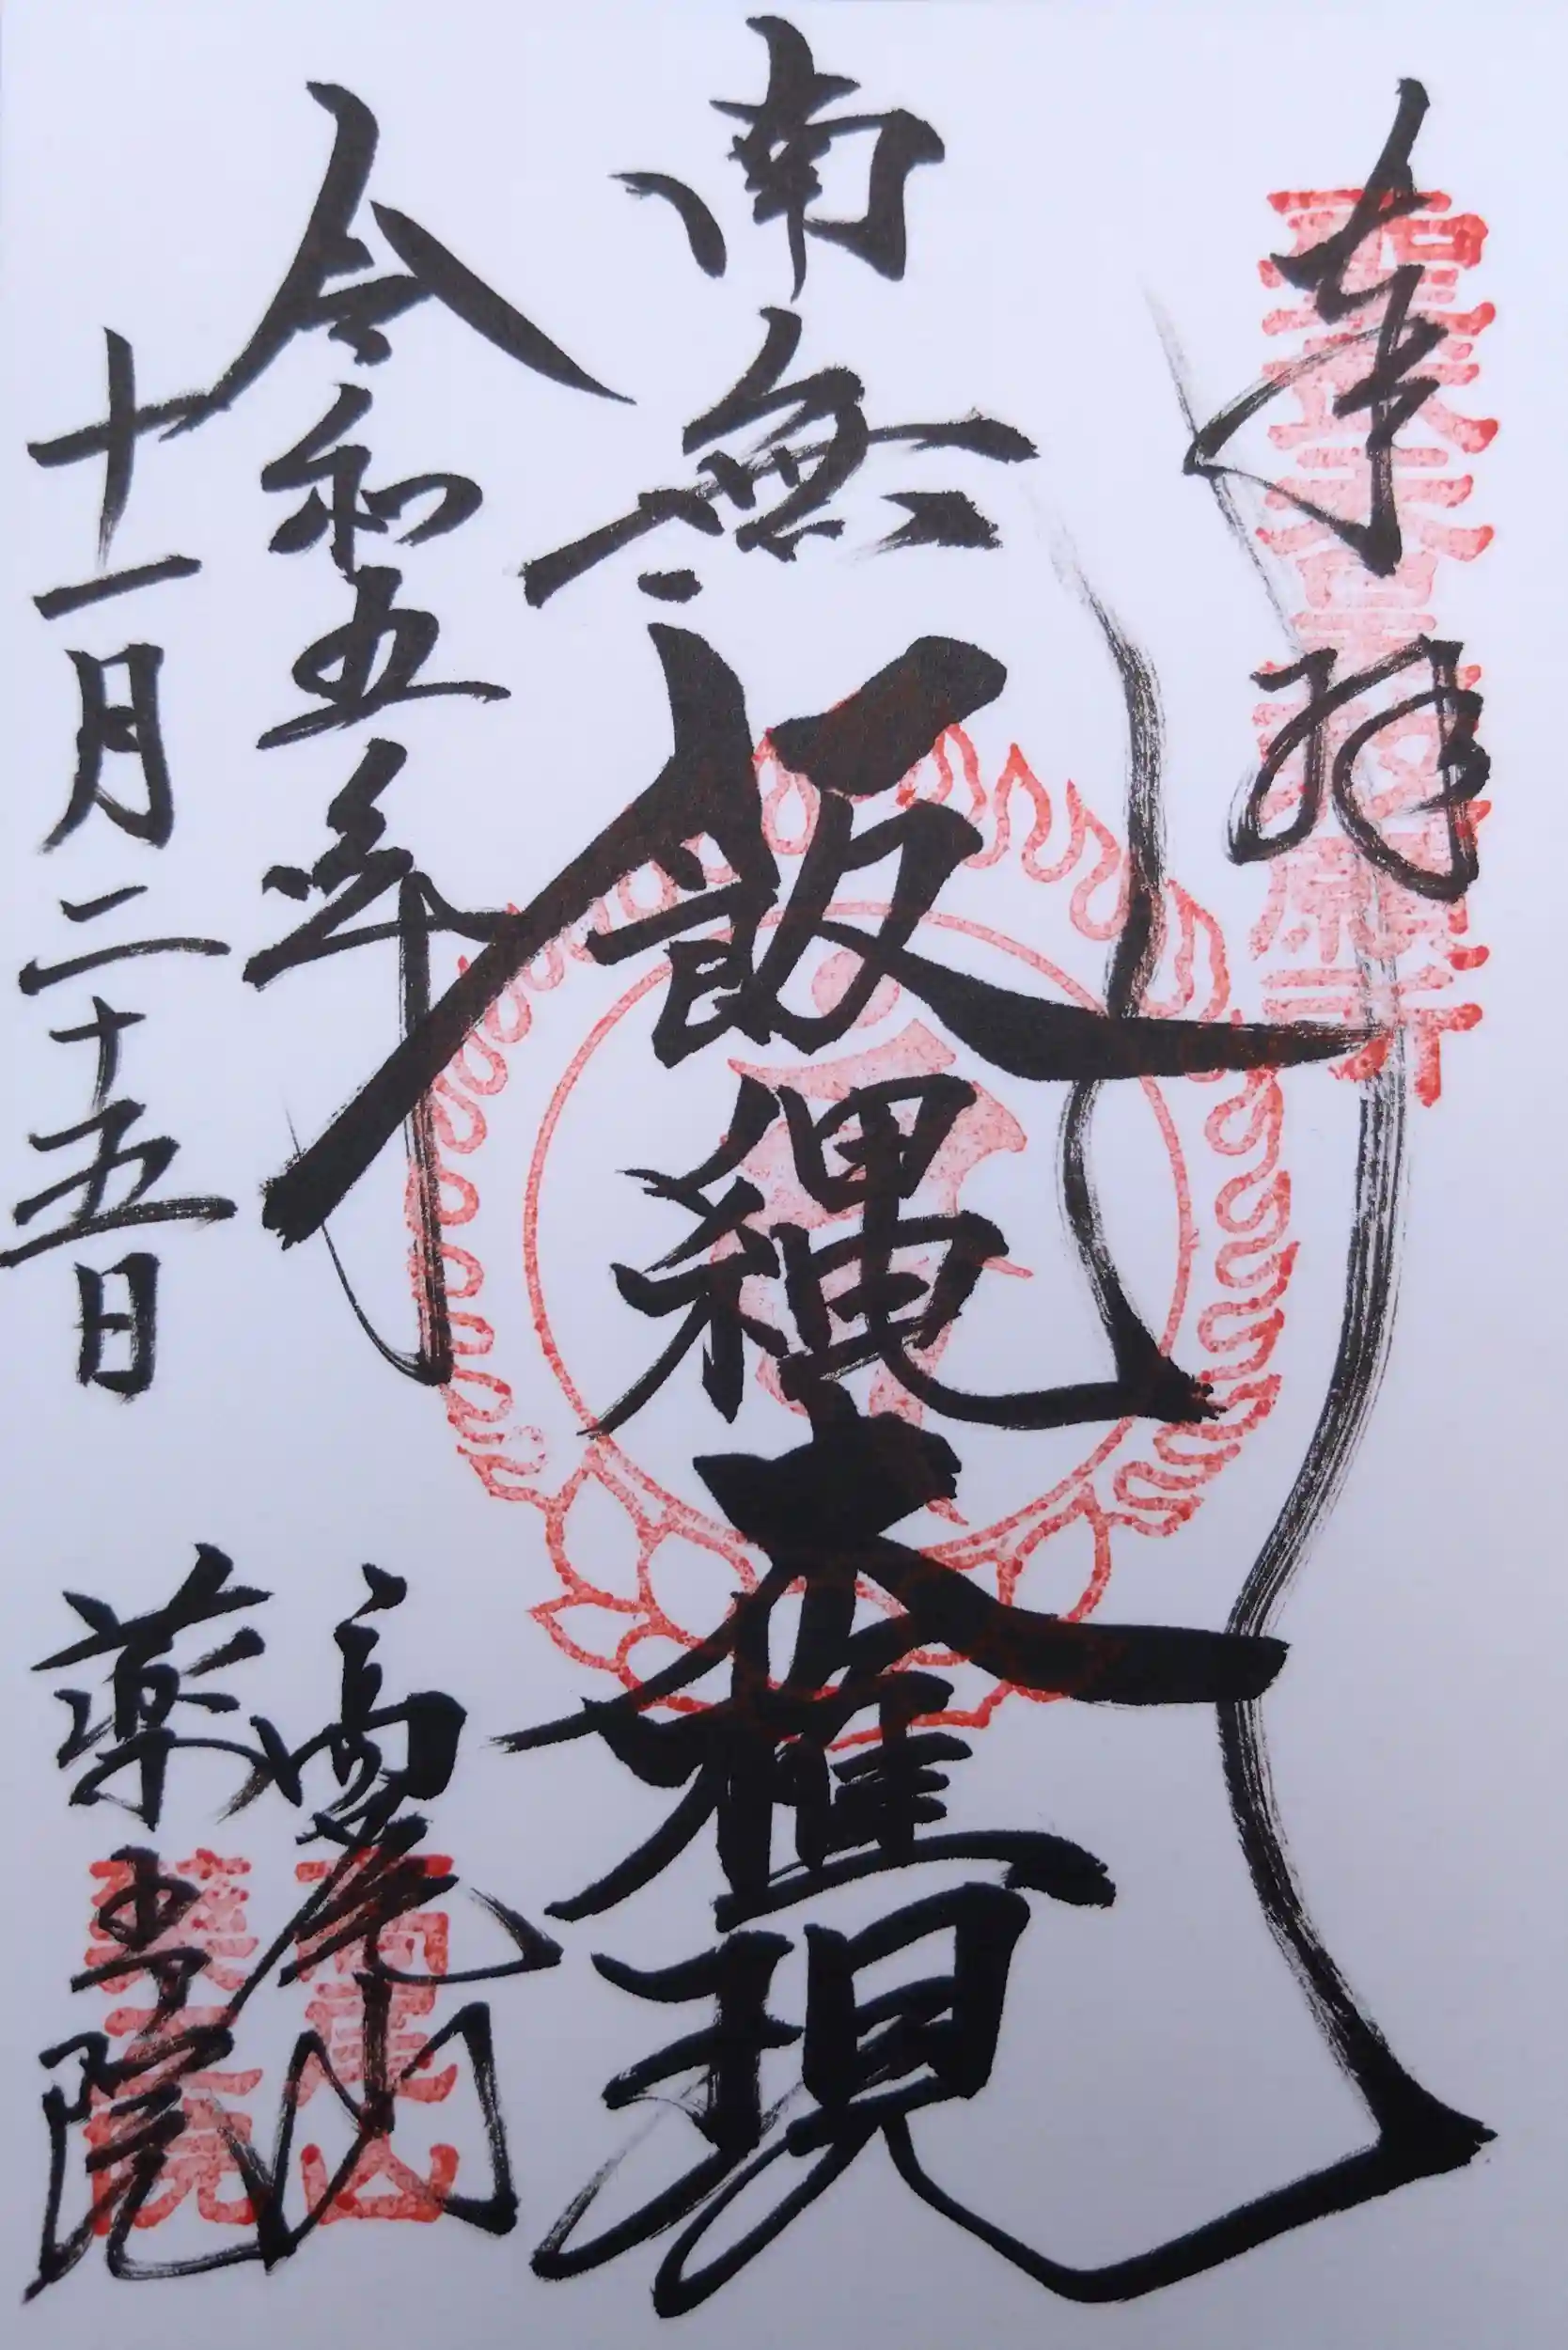 奉拝
南無飯縄大権現
令和五年
十一月二十五日
高尾山
薬王院
高尾山
薬王院